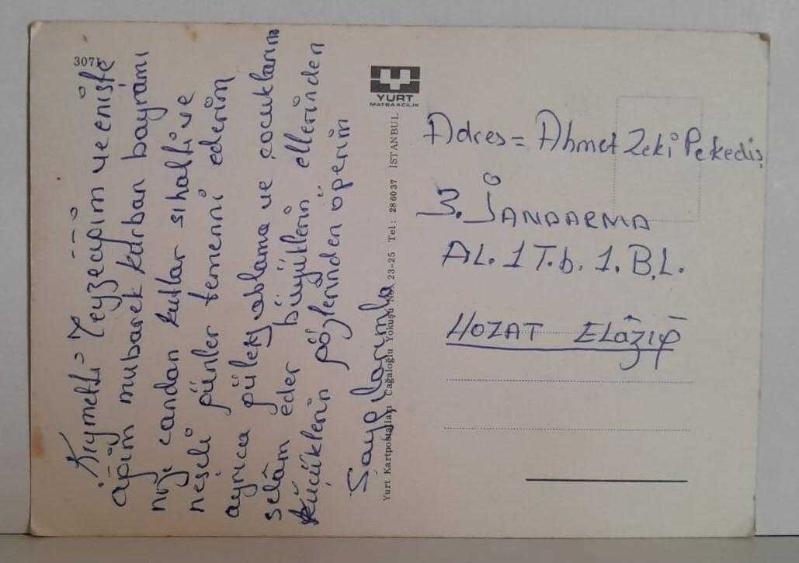 3071
Kıymetli Teyzeciğim ve enişte
ciğim mubarek kurban bayramı
nızı candan kutlar sıhatli ve
neşeli günler temenni ederim
ayrıca ablama ve çocuklarına
selâm eder büyüklerin ellerinden
küçüklerin gözlerinden öperim
Saygılarımla
YURT
MATBAACILIK
Yurt Kartpostalları Cağaloğlu Yokuşu 23-25 Tel: 286037 İSTANBUL
Adres = Ahmet Zeki Pekediş
JANDARMA
AL. 1 T.b. 1. B.L.
HOZAT ELÂZIĞ